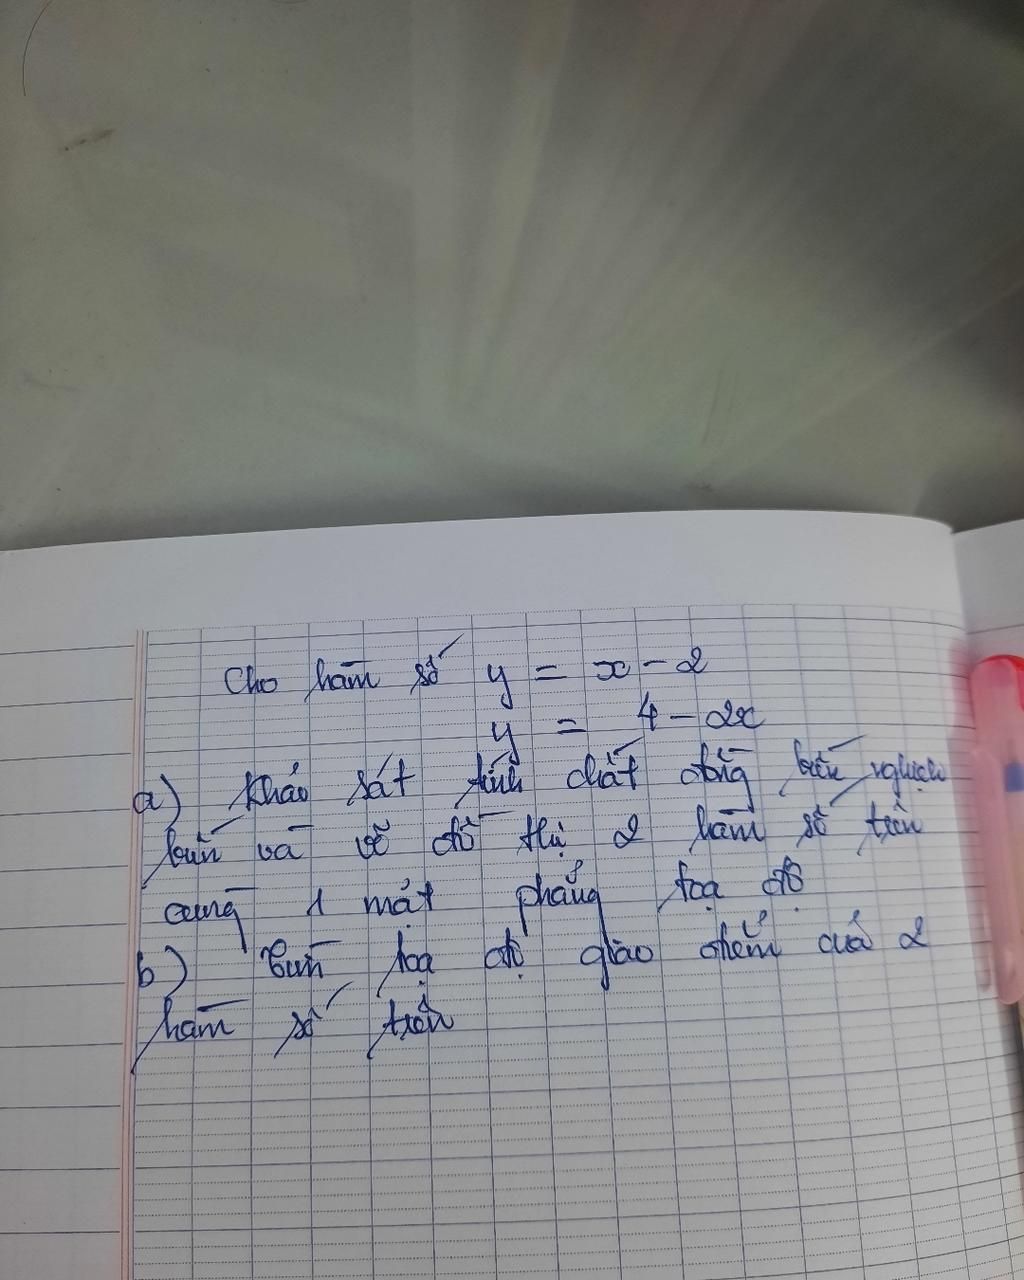 Cho hàm số y = x - 2
y = 4 - 2x
a) Khảo sát tính chất đồng biến nghịch
biến và vẽ đồ thị 2 hàm số trên
cùng 1 mặt phẳng toạ độ
b) Tìm toạ độ giao điểm của 2
hàm số trên